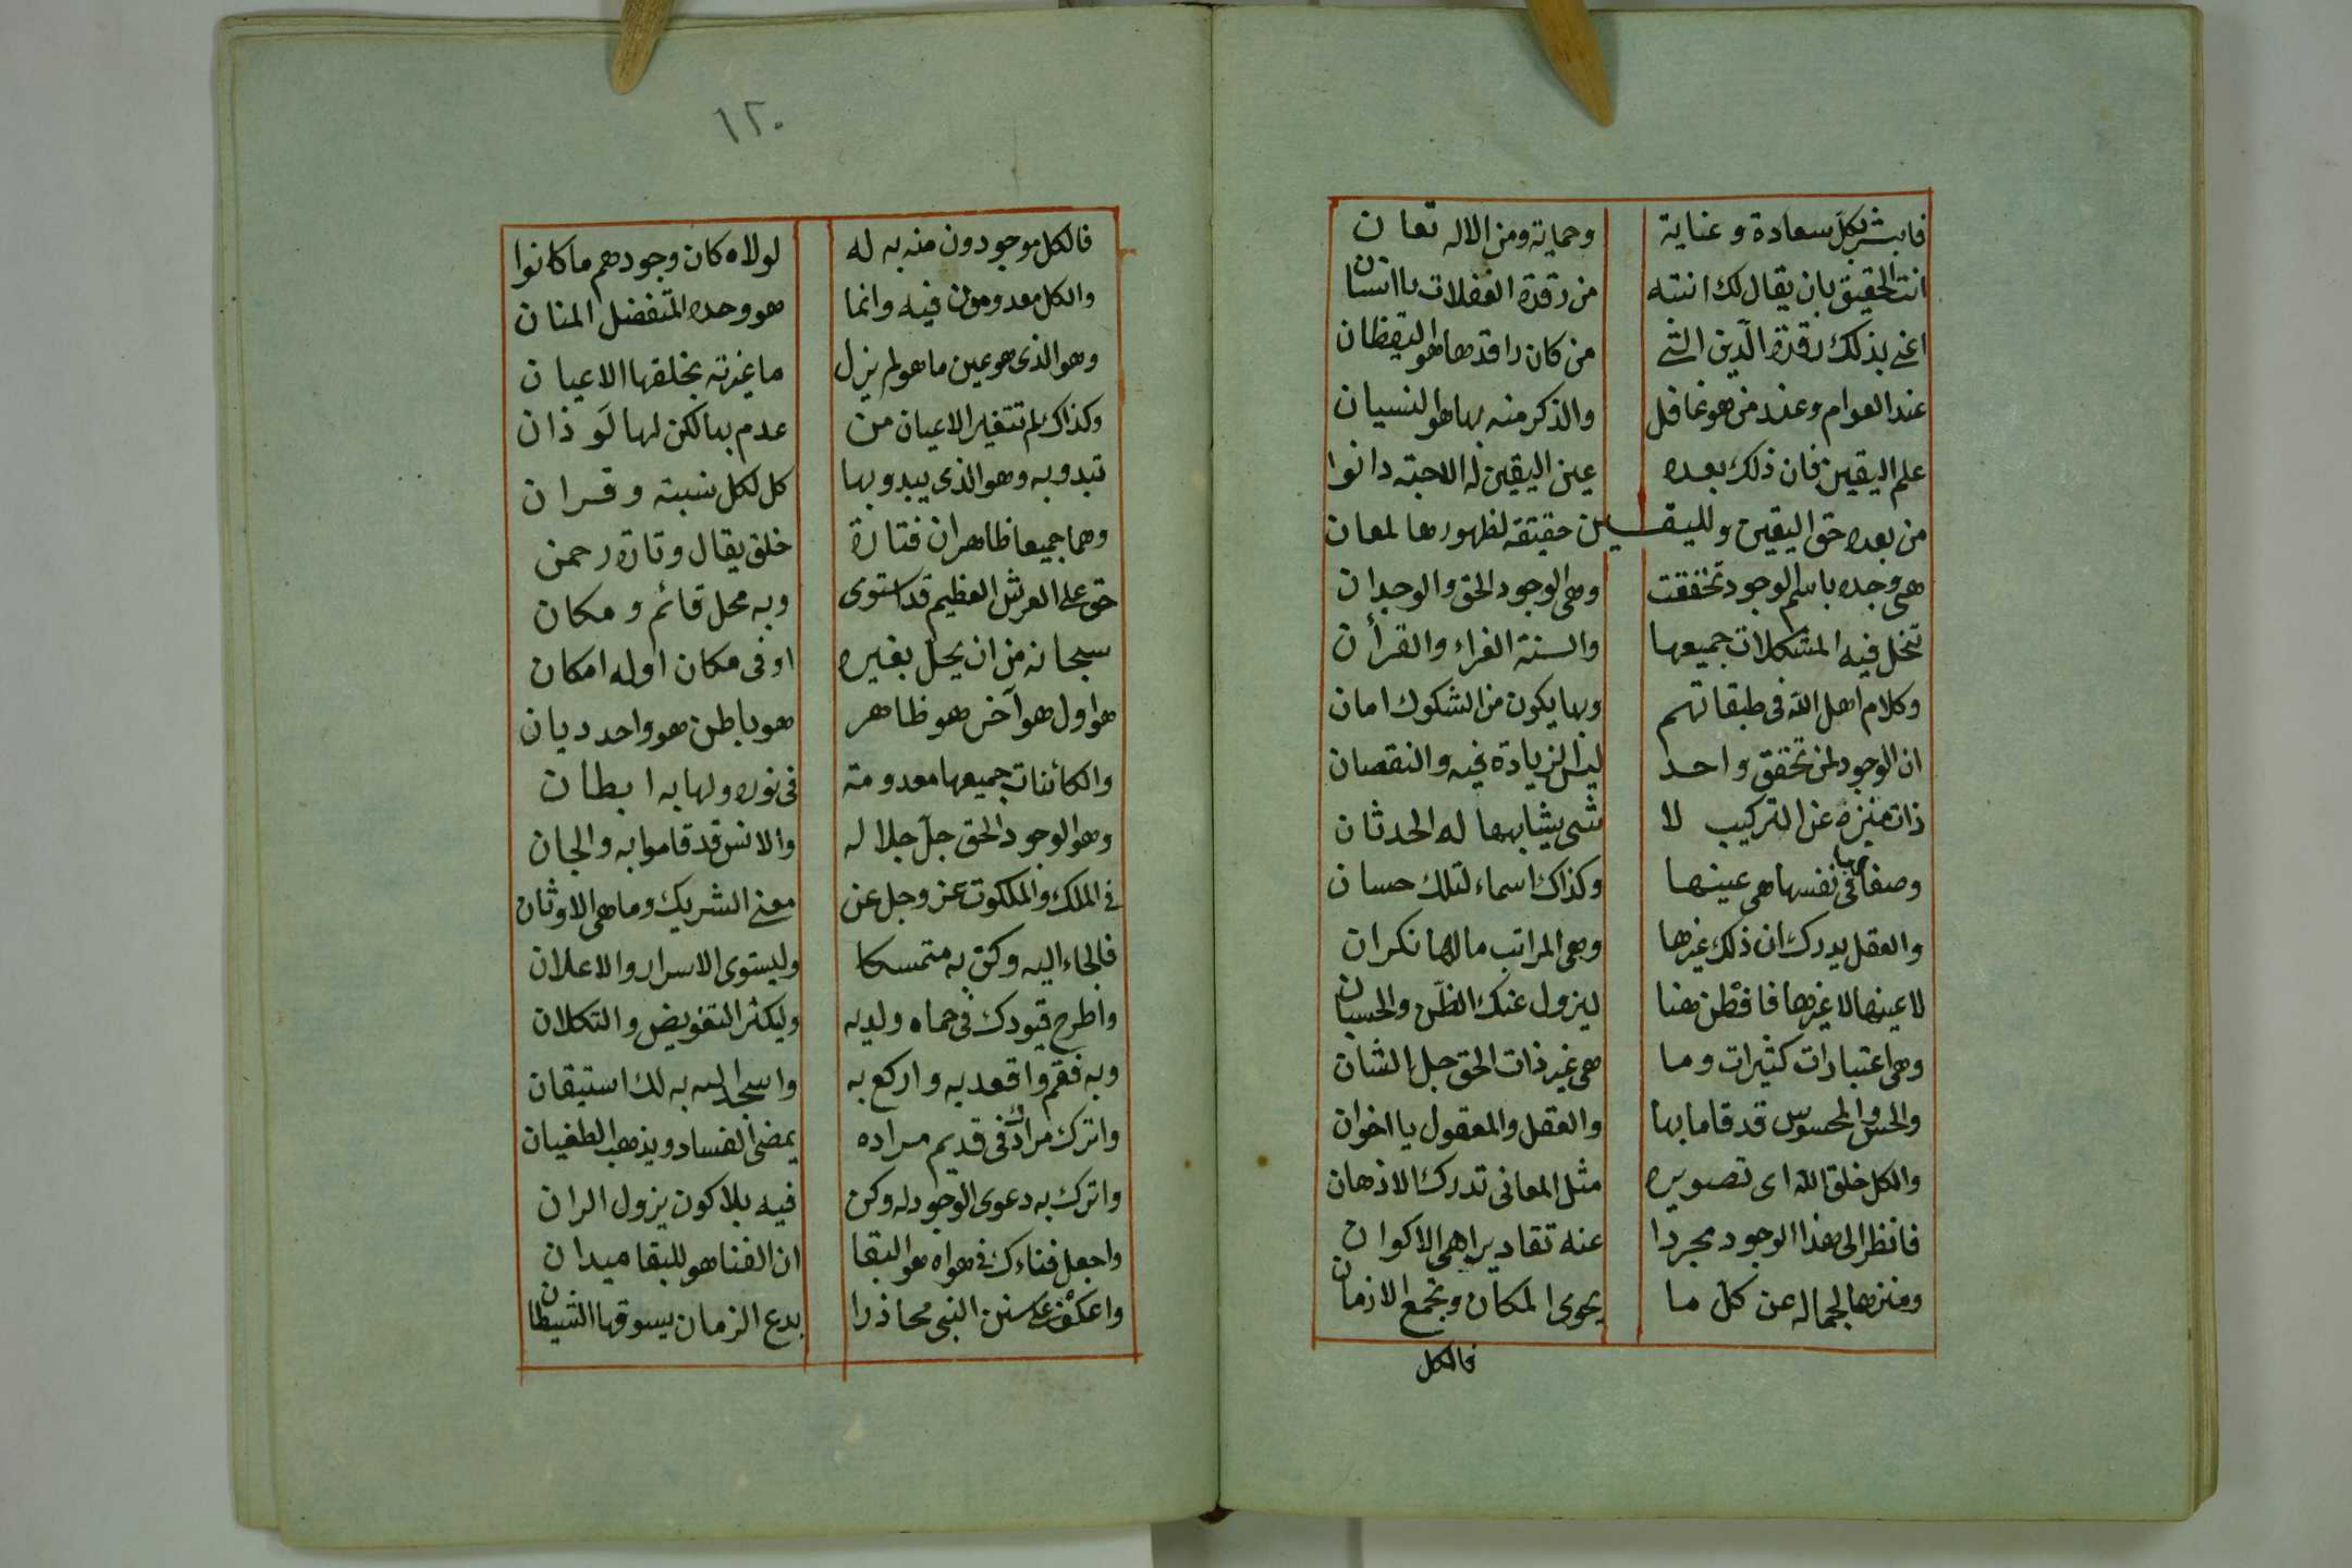 فابشر بكل سعادة وعناية وحماية ومن الاله تعان
انت الحقيق بان يقال لك انتبه من رقدة الغفلات يا انسان
اعني بذلك رقدة الدين التي من كان راقدها هو اليقظان
عند العوام وعند من هو غافل والذكر منه بها هو النسيان
علم اليقين فان ذلك بعده عين اليقين له الاحبة دانوا
من بعده حق اليقين ولليقين حقيقة لظهورها لمعان
هي وجده باسم الوجود تحققت وهي الوجود الحق والوجدان
تنحل فيه المشكلات جميعها والسنة الغراء والقرأن
وكلام اهل الله في طبقاتهم وبها يكون من الشكوك امان
ان الوجود لمن تحقق واحد ليس الزيادة فيه والنقصان
ذات منزه عن التركيب لا شي يشابهها له الحدثان
وصفاتها في نفسها هي عينها وكذاك اسماء لتلك حسان
والعقل يدرك ان ذلك غيرها وهي المراتب ما لها نكران
لا عينها لا غيرها فافطن هنا ليزول عنك الظن والحسبان
وهي اعتبارات كثيرات وما هي غير ذات الحق جل الشان
والحس والمحسوس قد قاما بها والعقل والمعقول يا اخوان
والكل خلق الله اى تصويره مثل المعاني تدرك الاذهان
فانظر الى هذا الوجود مجردا عنه تقاديرا هي الاكوان
ومنزها لجماله عن كل ما يحوى المكان وتجمع الازمان
فالكل
١٢٠
فالكل موجودون منه به له لولاه كان وجودهم ما كانوا
والكل معدومون فيه وانما هو وحده المتفضل المنان
وهو الذي هو عين ما هو لم يزل ما غيرته بخلقها الاعيان
وكذاك لم تتغير الاعيان من عدم بها لكن لها لوذان
تبدو به وهو الذي يبدو بها كل لكل نسبة وقران
وهما جميعا ظاهران فتارة خلق يقال وتارة رحمن
حق على العرش العظيم قد استوى وبه محل قائم ومكان
سبحانه من ان يحل بغيره او في مكان او له امكان
هو اول هو آخر هو ظاهر هو باطن هو واحد ديان
والكائنات جميعها معدومة في نوره ولها به ابطان
وهو الوجود الحق جل جلاله والانس قد قاموا به والجان
في الملك والملكوت عز وجل عن معنى الشريك وما هي الاوثان
فالجاء اليه وكن به متمسكا وليستوى الاسرار والاعلان
واطرح قيودك في حماه ولديه وليكثر التفويض والتكلان
وبه فقم واقعد به واركع به واسجد اليه به لك استيقان
واترك مرادك في قديم مراده يمضى الفساد ويذهب الطغيان
واترك به دعوى الوجود له وكن فيه بلا كون يزول الران
واجعل فناءك في هواه هو البقا ان الفنا هو للبقا ميدان
واعكف على سنن النبي محاذرا بدع الزمان يسوقها الشيطان